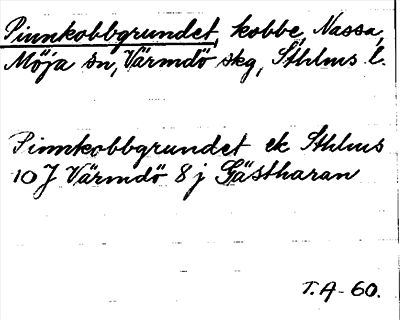 Pinnkobbgrundet, kobbe, Nassa,
Möja sn, Värmdö skg, Sthlms l.
Pinnkobbgrundet ek Sthlms
10 J Värmdö 8 j Gästharan
T.A-60.